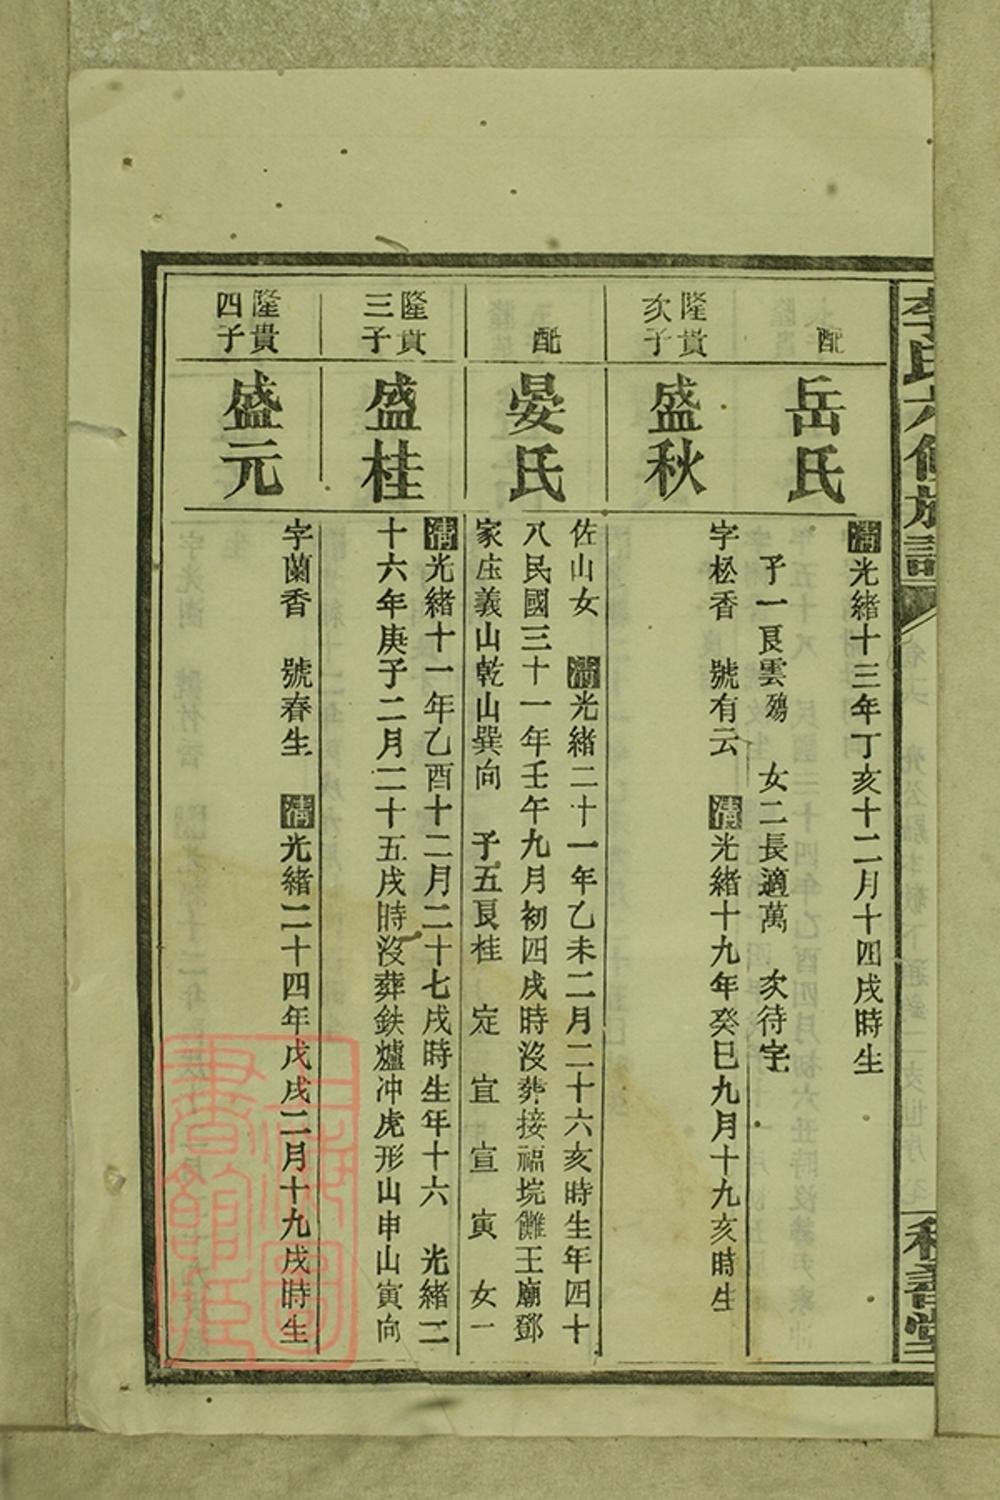 李氏六修族譜
配
岳氏
清光緒十三年丁亥十二月十四戌時生
子一艮雲殤 女二長適萬 次待字
隆貴
次子
盛秋
字松香 號有云 清光緒十九年癸巳九月十九亥時生
配
晏氏
佐山女 清光緒二十一年乙未二月二十六亥時生年四十
八民國三十一年壬午九月初四戌時沒葬接福垸儺王廟鄧
家庄義山乾山巽向 子五艮桂 定 宜 宣 寅 女一
隆貴
三子
盛桂
清光緒十一年乙酉十二月二十七戌時生年十六 光緒二
十六年庚子二月二十五戌時沒葬鉄爐冲虎形山申山寅向
隆貴
四子
盛元
字蘭香 號春生 清光緒二十四年戊戌二月十九戌時生